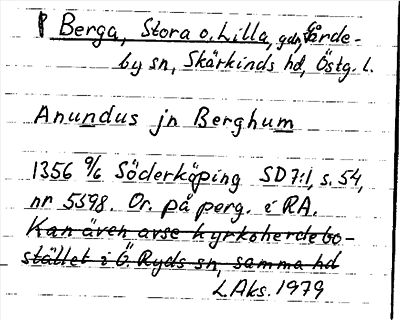 P Berga, Stora o. Lilla, gdr, Gårde-
by sn, Skärkinds hd, Östg. l.
Anundus jn Berghum
1356 9/6 Söderköping SD7:1, s. 54,
nr 5598. Or. på perg. i RA.
Kan även avse kyrkoherdebo-
stället i Ö. Ryds sn, samma hd
LAks. 1979